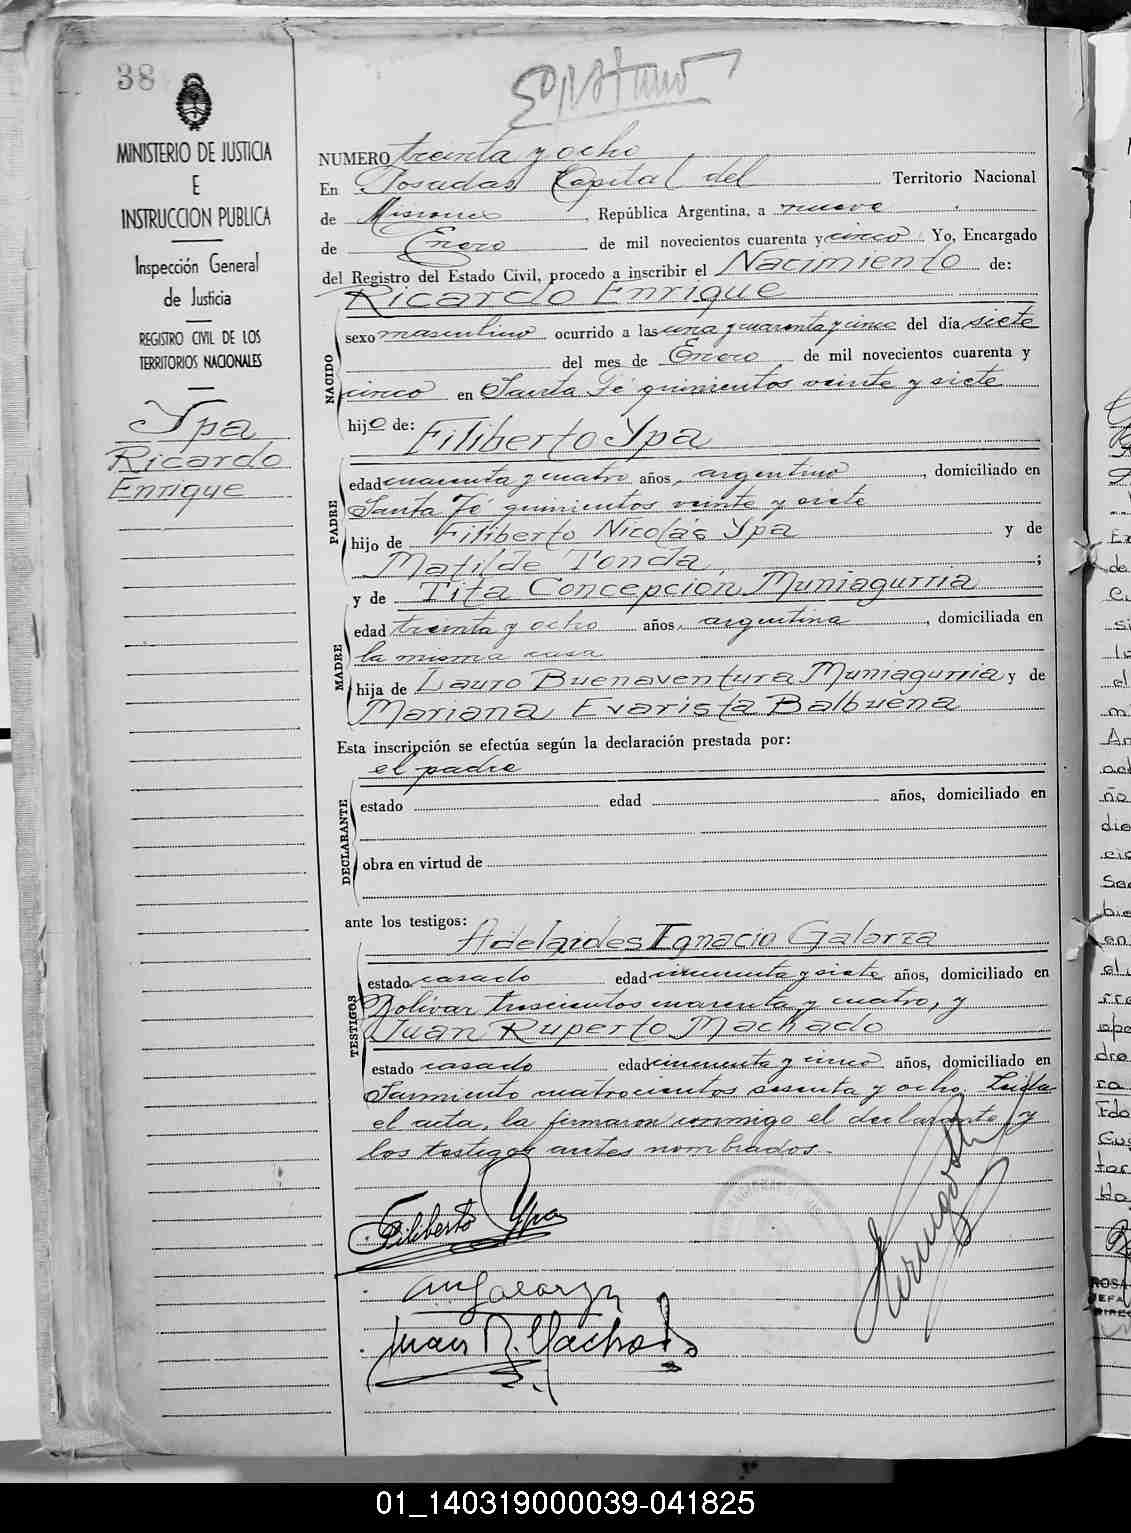 38
MINISTERIO DE JUSTICIA
E
INSTRUCCION PUBLICA
Inspección General
de Justicia
REGISTRO CIVIL DE LOS
TERRITORIOS NACIONALES
Ypa
Ricardo
Enrique
NUMERO treinta y ocho
En Posadas Capital del Territorio Nacional
de Misiones, República Argentina, a nueve
de Enero de mil novecientos cuarenta y cinco Yo, Encargado
del Registro del Estado Civil, procedo a inscribir el Nacimiento de:
Ricardo Enrique
NACIDO
sexo masculino ocurrido a las una y cuarenta y cinco del día siete
del mes de Enero de mil novecientos cuarenta y
cinco en Santa Fé quinientos veinte y siete
hijo de: Filiberto Ypa
PADRE
edad cuarenta y cuatro años, argentino, domiciliado en
Santa Fé quinientos veinte y siete
hijo de Filiberto Nicolás Ypa y de
Matilde Tonda;
y de Tita Concepción Muniagurria
MADRE
edad treinta y ocho años, argentina, domiciliada en
la misma casa
hija de Lauro Buenaventura Muniagurria y de
Mariana Evarista Balbuena
Esta inscripción se efectúa según la declaración prestada por:
el padre
DECLARANTE
estado edad años, domiciliado en
obra en virtud de
ante los testigos:
Adelaides Ignacio Galarza
TESTIGOS
estado casado edad cincuenta y siete años, domiciliado en
Bolívar trescientos cuarenta y cuatro, y
Juan Ruperto Machado
estado casado edad cincuenta y cinco años, domiciliado en
Sarmiento cuatrocientos sesenta y ocho. Leída
el acta, la firmaron conmigo el declarante y
los testigos antes nombrados.
Filiberto Ypa
Galarza
Juan R. Machado
01_140319000039-041825